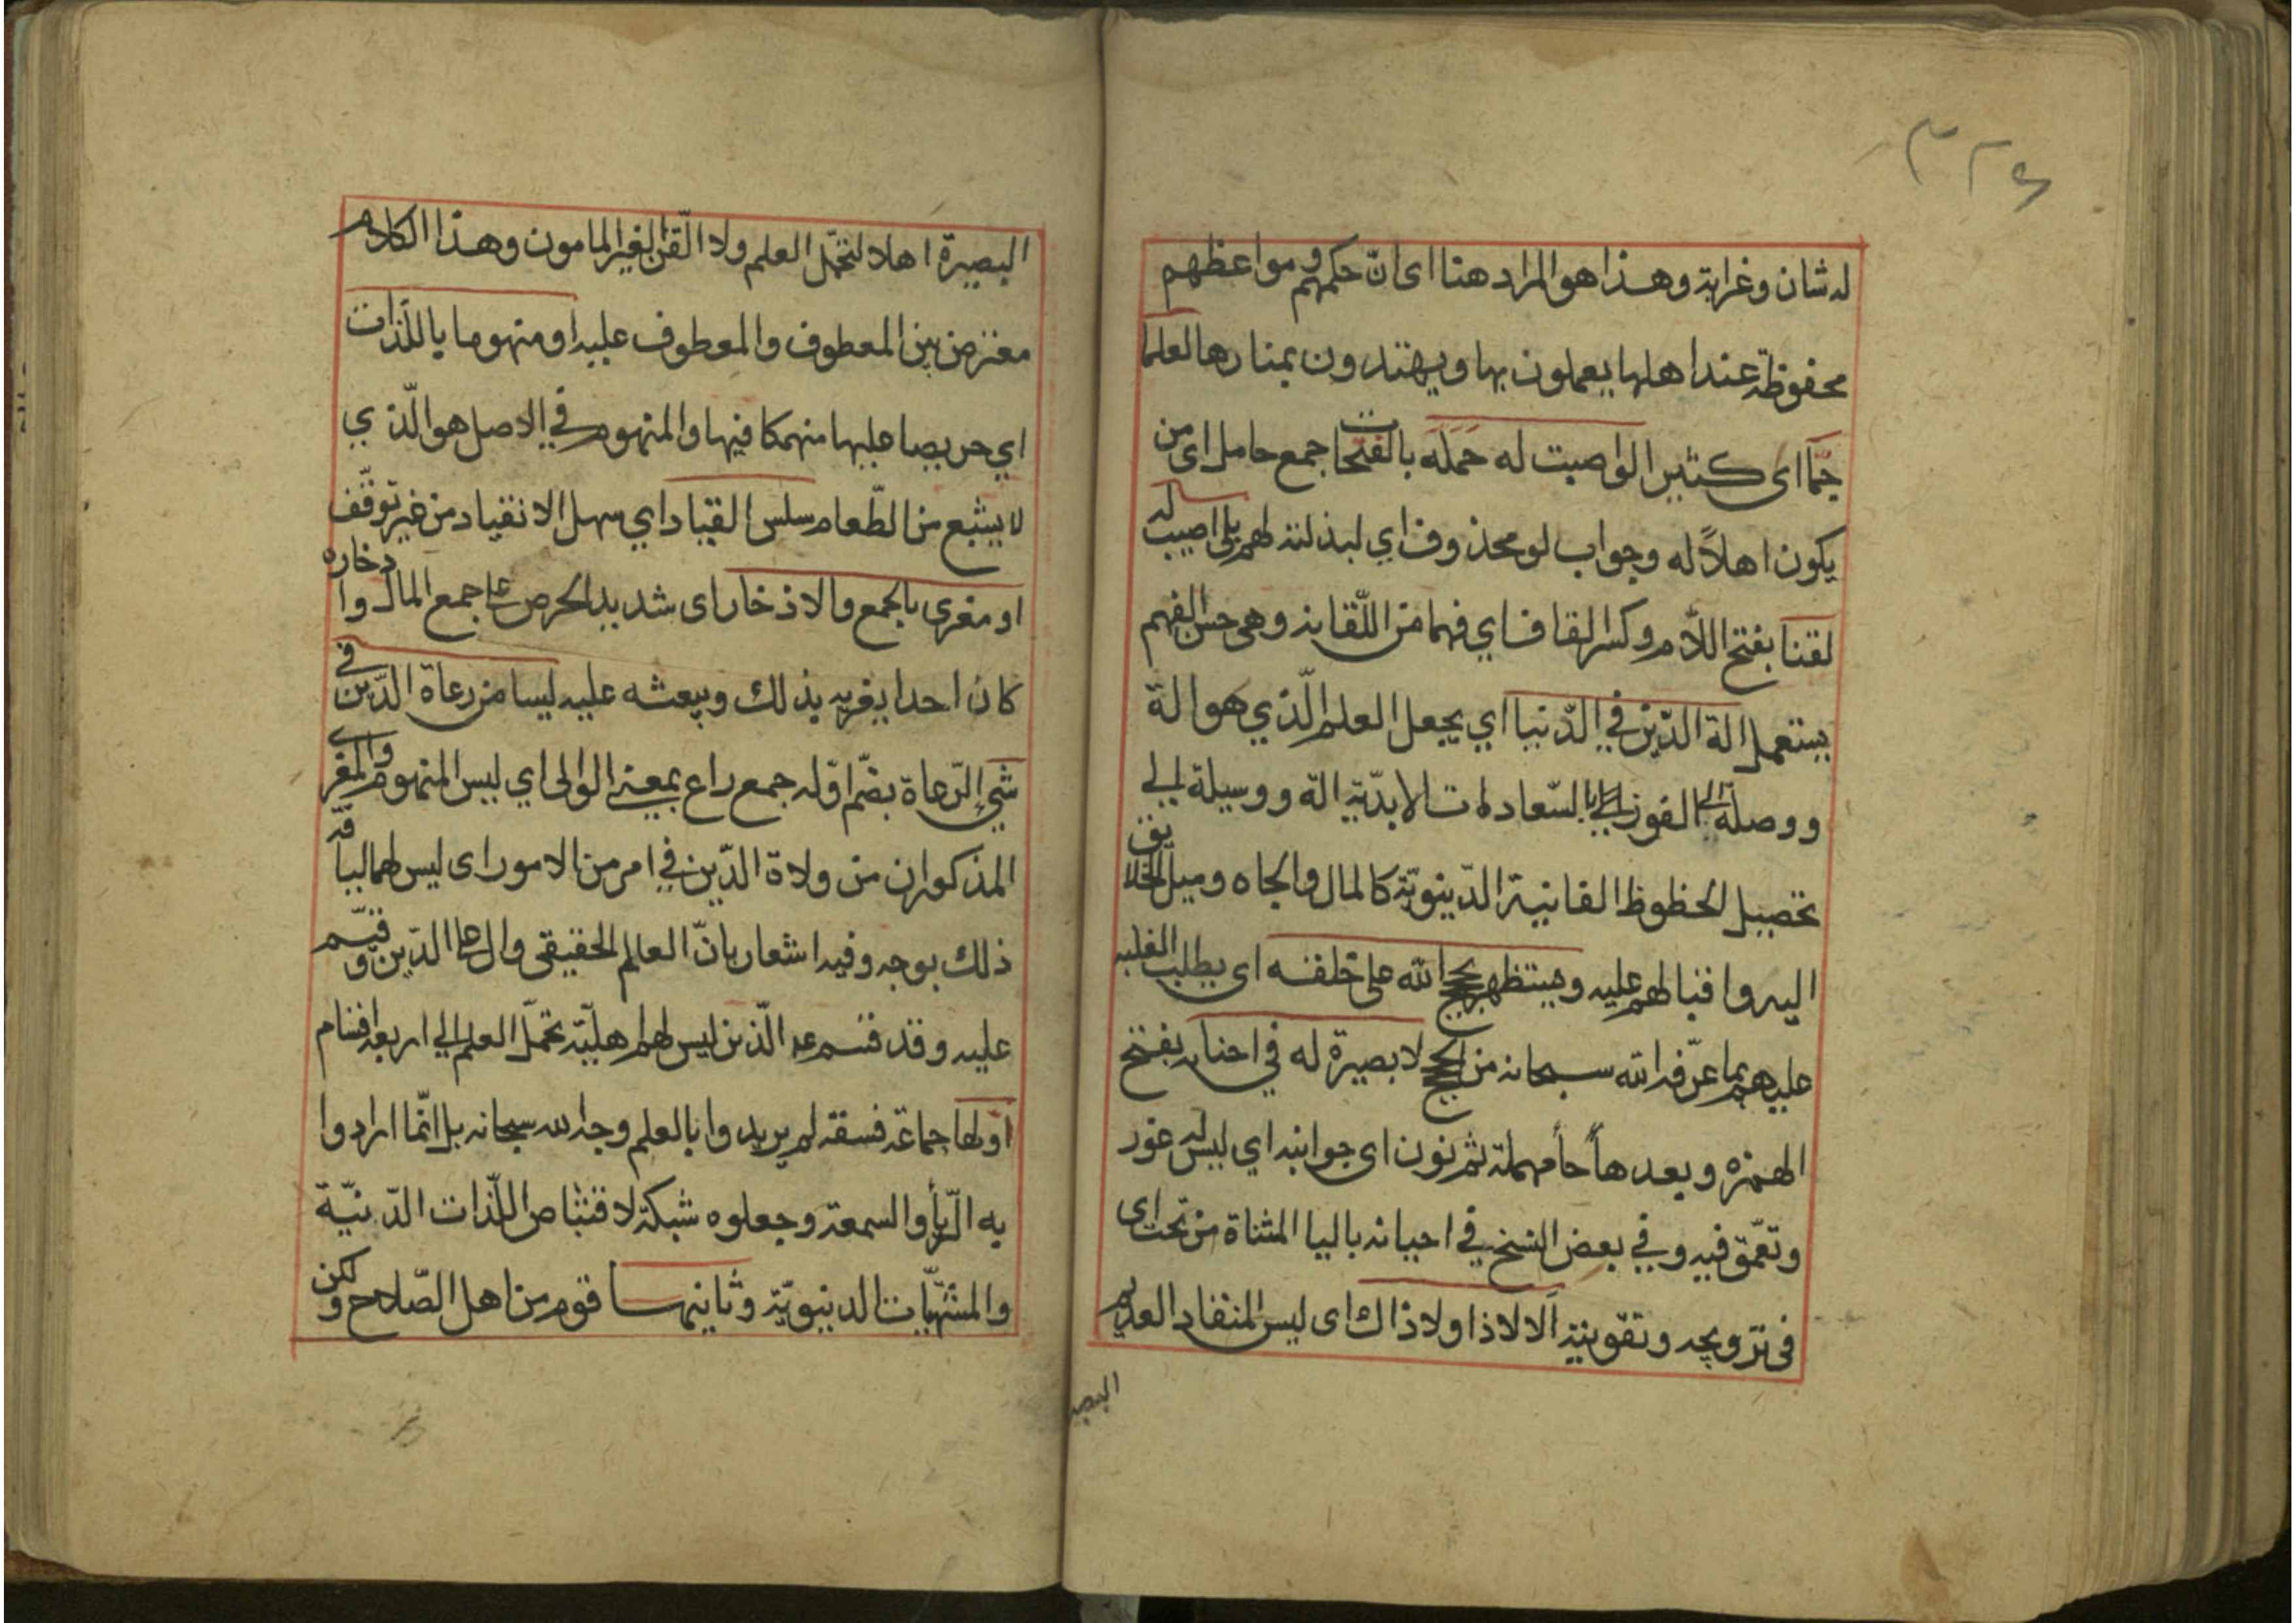 ٣٢٤
له شان وغرابة وهذا هو المراد هنا اى ان حكمهم و مواعظهم
محفوظة عند اهلها يعملون بها ويهتدون بمنارها لعلما
جمّا اى كثيرا لو اصبت له حَمَلَه بالفتحات جمع حامل اى من
يكون اهلاً له وجواب لو محذوف اي لبذلته لهم بلى اصيب له
لقنا بفتح اللّام وكسر القاف اي فهما من اللّقانه وهي حسن الفهم
يستعمل الة الدّين في الدّنيا اي يجعل العلم الّذي هو الة
ووصلة الى الفوز بالسّعادات الابديّة الة ووسيلة الي
تحصيل الحظوظ الفانية الدّينويّة كالمال والجاه وميل الخلايق
اليه واقبالهم عليه ويستظهر بحجج الله على خلقه اى يطلب الغلبه
عليهم بما عرّفه الله سبحانه من الحجج لا بصيرة له في احنانه بفتح
الهمزه وبعدها حأ مهملة ثم نون اى جوانبه اي ليس له غور
وتعمّق فيه وفي بعض النسخ في احيانه باليا المثناة من تحت اى
فى ترويجه وتقويته الا لا ذا ولا ذاك اى ليس المنقاد العديم
البصيرة
البصيرة اهلا لتحمّل العلم ولا الّلقن الغير المامون وهذا الكلام
معترض بين المعطوف والمعطوف عليه او منهوما باللّذات
اي حريصا عليها منهمكا فيها والمنهوم في الاصل هو الّذي
لا يشبع من الطّعام سلس القياد اي سهل الانقياد من غير توقّف
او مغرى بالجمع والاذخار اى شديد الحرص على جمع المال وادخاره
كان احدا يغريه بذلك ويبعثه عليه ليسا من رعاة الدّين في
شيء الرّعاة بضّم اوّله جمع راع بمعنى الوالى اي ليس المنهوم والمغرى
المذكوران من ولاة الدّين في امر من الامور اى ليس لهما لياقة
ذلك بوجه وفيه اشعار بانّ العالم الحقيقى وال على الدّين وقيّم
عليه وقد قسم عم الّذين ليس لهم اهليّة تحمّل العلم الي اربعة اقسام
اوّلها جماعة فسقة لم يريدوا بالعلم وجه الله سبحانه بل انّما ارادوا
به الرّيأ والسمعة وجعلوه شبكة لاقتناص اللّذات الدّنيّة
والمشتهيات الدينويّة وثانيهما قوم من اهل الصّلاح ولكن